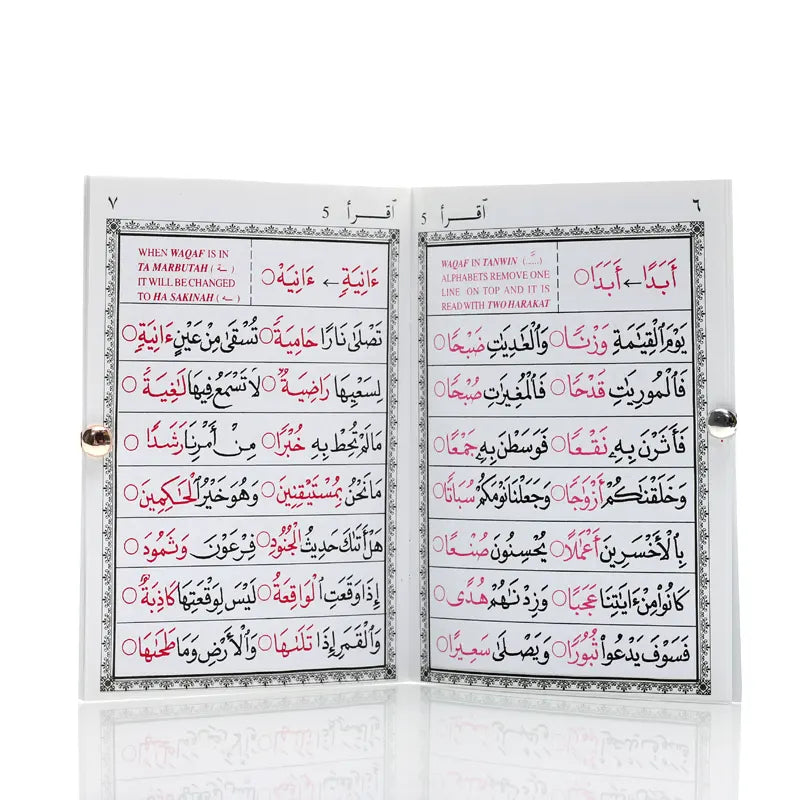 ٦
اقرأ 5
أَبَدًا ← أَبَدَا
WAQAF IN TANWIN (.....ً)
ALPHABETS REMOVE ONE
LINE ON TOP AND IT IS
READ WITH TWO HARAKAT
يَوْمَ الْقِيَٰمَةِ وَزْنًا ○ وَالْعَٰدِيَٰتِ ضَبْحًا ○
فَالْمُورِيَٰتِ قَدْحًا ○ فَالْمُغِيرَٰتِ صُبْحًا ○
فَأَثَرْنَ بِهِۦ نَقْعًا ○ فَوَسَطْنَ بِهِۦ جَمْعًا ○
وَخَلَقْنَٰكُمْ أَزْوَٰجًا ○ وَجَعَلْنَا نَوْمَكُمْ سُبَاتًا ○
بِالْأَخْسَرِينَ أَعْمَٰلًا ○ يُحْسِنُونَ صُنْعًا ○
كَانُوا مِنْ ءَايَٰتِنَا عَجَبًا ○ وَزِدْنَٰهُمْ هُدًى ○
فَسَوْفَ يَدْعُوا ثُبُورًا ○ وَيَصْلَىٰ سَعِيرًا ○
٧
اقرأ 5
ءَانِيَةٍ ← ءَانِيَهْ ○
WHEN WAQAF IS IN
TA MARBUTAH ( ـة )
IT WILL BE CHANGED
TO HA SAKINAH ( ـه )
تَصْلَىٰ نَارًا حَامِيَةً ○ تُسْقَىٰ مِنْ عَيْنٍ ءَانِيَةٍ ○
لِسَعْيِهَا رَاضِيَةٌ ○ لَا تَسْمَعُ فِيهَا لَٰغِيَةً ○
مَا لَمْ تُحِطْ بِهِۦ خُبْرًا ○ مِنْ أَمْرِنَا رَشَدًا ○
مَا نَحْنُ بِمُسْتَيْقِنِينَ ○ وَهُوَ خَيْرُ الْحَٰكِمِينَ ○
هَلْ أَتَىٰكَ حَدِيثُ الْجُنُودِ ○ فِرْعَوْنَ وَثَمُودَ ○
إِذَا وَقَعَتِ الْوَاقِعَةُ ○ لَيْسَ لِوَقْعَتِهَا كَاذِبَةٌ ○
وَالْقَمَرِ إِذَا تَلَىٰهَا ○ وَالْأَرْضِ وَمَا طَحَىٰهَا ○